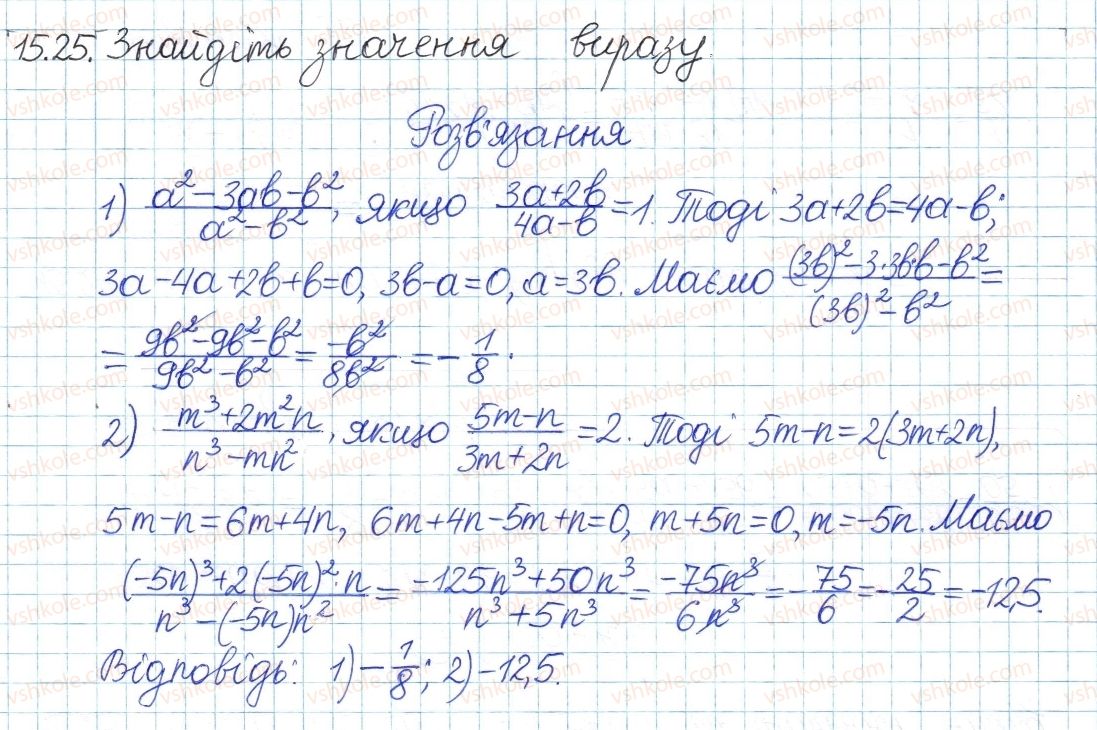 15.25. Знайдіть значення виразу.
Розв'язання
1) (a² - 3ab - b²)/(a² - b²), якщо (3a+2b)/(4a-b) = 1. Тоді 3a+2b=4a-b;
3a-4a+2b+b=0, 3b-a=0, a=3b. Маємо ((3b)² - 3·3b·b - b²)/((3b)² - b²) =
= (9b² - 9b² - b²)/(9b² - b²) = (-b²)/(8b²) = - 1/8.
2) (m³+2m²n)/(n³-mn²), якщо (5m-n)/(3m+2n) = 2. Тоді 5m-n=2(3m+2n),
5m-n=6m+4n, 6m+4n-5m+n=0, m+5n=0, m=-5n. Маємо
((-5n)³+2(-5n)²·n)/(n³-(-5n)n²) = (-125n³+50n³)/(n³+5n³) = (-75n³)/(6n³) = - 75/6 = - 25/2 = -12,5.
Відповідь: 1) - 1/8; 2) -12,5.